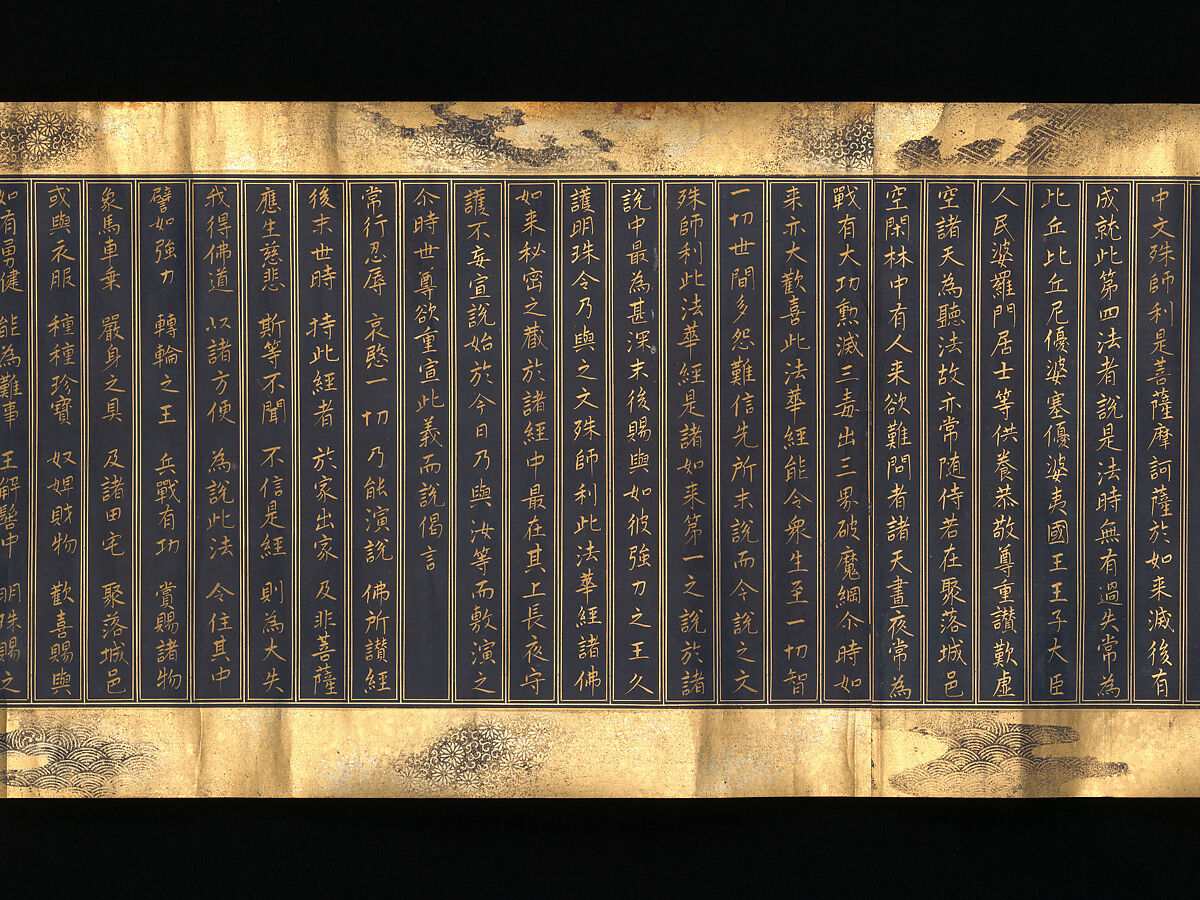 中文殊師利是菩薩摩訶薩於如来滅後有
成就此第四法者說是法時無有過失常為
比丘比丘尼優婆塞優婆夷國王王子大臣
人民婆羅門居士等供養恭敬尊重讃歎虛
空諸天為聽法故亦常随侍若在聚落城邑
空閑林中有人来欲難問者諸天晝夜常為
戰有大功勲滅三毒出三界破魔網尒時如
来亦大歡喜此法華經能令衆生至一切智
一切世間多怨難信先所未說而今說之文
殊師利此法華經是諸如来第一之說於諸
說中最為甚深末後賜與如彼強力之王久
護明珠今乃與之文殊師利此法華經諸佛
如来秘密之蔵於諸經中最在其上長夜守
護不妄宣說始於今日乃與汝等而敷演之
尒時世尊欲重宣此義而說偈言
常行忍辱 哀愍一切 乃能演說 佛所讃經
後末世時 持此經者 於家出家 及非菩薩
應生慈悲 斯等不聞 不信是經 則為大失
我得佛道 以諸方便 為說此法 令住其中
譬如強力 轉輪之王 兵戰有功 賞賜諸物
象馬車乗 嚴身之具 及諸田宅 聚落城邑
或與衣服 種種珍寶 奴婢財物 歡喜賜與
如有勇健 能為難事 王解髻中 明珠賜之